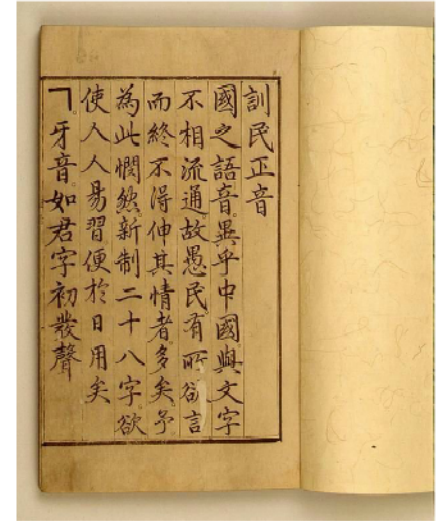 訓民正音
國之語音。異乎中國。與文字
不相流通。故愚民有所欲言
而終不得伸其情者。多矣。予
為此憫然。新制二十八字。欲
使人人易習。便於日用矣
ㄱ。牙音。如君字初發聲